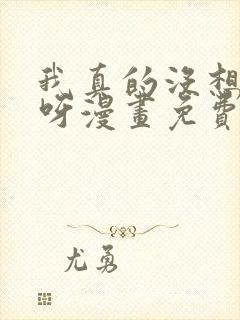 我真的没想
呀漫画免费
尤勇